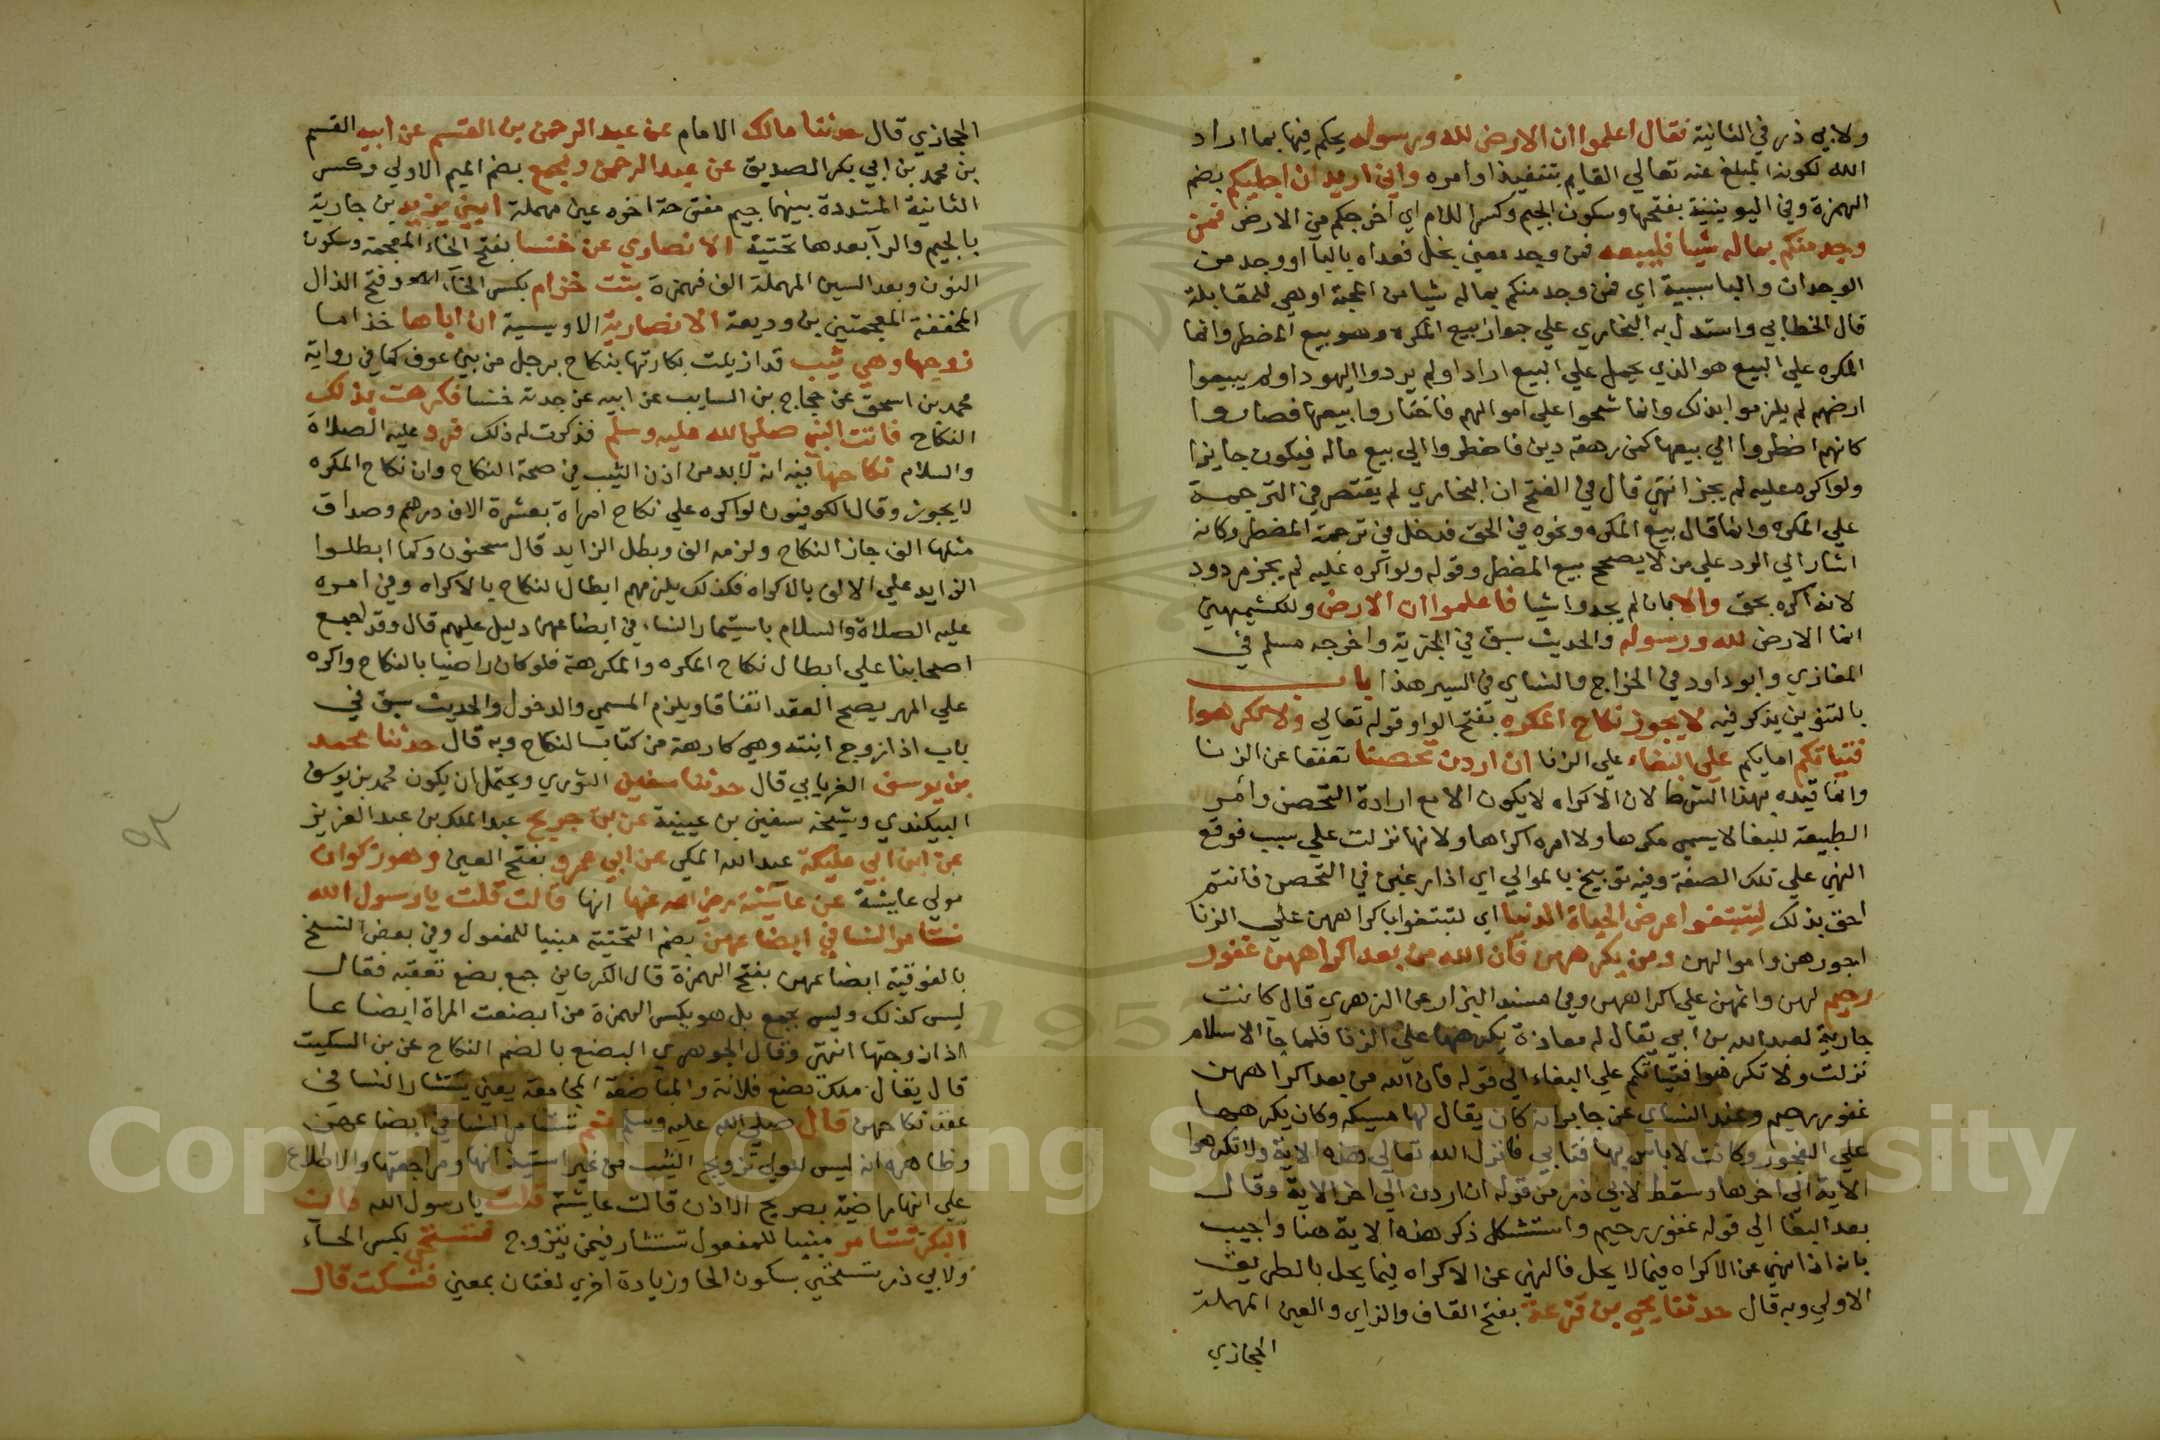 ولابي ذر في الثانية فقال اعلموا ان الارض لله ورسوله يحكم فيها بما اراد
الله لكونه المبلغ عنه تعالي القايم بتنفيذ اوامره واني اريد ان اجليكم بضم
الهمزة وفي اليونينية بفتحها وسكون الجيم وكسر اللام اي اخرجكم من الارض فمن
وجد منكم بماله شيا فليبعه فمن وجد معني بخل فعداه بالبا او وجد من
الوجدان والبا سببية اي فمن وجد منكم بماله شيا من المحبة او هي للمقابلة
قال الخطابي واستدل به البخاري علي جواز بيع المكره وهو بيع المضطر وانما
المكره علي البيع هو الذي يحمل علي البيع اراد او لم يرد واليهود لو لم يبيعوا
ارضهم لم يلزموا بذلك وانما شحوا علي اموالهم فاختاروا بيعها فصاروا
كانهم اضطروا الي بيعها كمن رهقه دين فاضطر الي بيع ماله فيكون جايزا
ولو اكره عليه لم يجز انتهي قال في الفتح ان البخاري لم يقتصر في الترجمة
علي المكره وانما قال بيع المكره ونحوه في الحق فدخل في ترجمته المضطر وكانه
اشار الي الرد علي من لا يصحح بيع المضطر وقوله ولو اكره عليه لم يجز مردود
لانه اكره بحق والا بان لم يجدوا شيا فاعلموا ان الارض وللكشميهني
انما الارض لله ورسوله والحديث سبق في الجزية واخرجه مسلم في
المغازي وابو داود في الخراج والنساي في السير هذا باب
بالتنوين يذكر فيه لا يجوز نكاح المكره بفتح الرا وقوله تعالي ولا تكرهوا
فتياتكم امايكم علي البغاء علي الزنا ان اردن تحصنا تعففا عن الزنا
وانما قيده بهذا الشرط لان الاكراه لا يكون الا مع ارادة التحصن وامر
الطيعة للبغا لا يسمي مكرها ولا امره اكراها ولانها نزلت علي سبب فوقع
النهي علي تلك الصفة وفيه توبيخ بالموالي اي اذا رغبن في التحصن فانتم
احق بذلك لتبتغوا عرض الحياة الدنيا اي لتبتغوا باكراههن علي الزنا
اجورهن واموالهن ومن يكرههن فان الله من بعد اكراههن غفور
رحيم لهن واثمهن علي اكراههن وفي مسند البزار عن الزهري قال كانت
جارية لعبد الله بن ابي يقال له معاذة يكرهها علي الزنا فلما جا الاسلام
نزلت ولا تكرهوا فتياتكم علي البغاء الي قوله فان الله من بعد اكراههن
غفور رحيم وعند النساي عن جابر انه كان يقال لها مسيكه وكان يكرهها
علي الفجور وكانت لا باس بها فتابي فانزل الله تعالي هذه الاية ولا تكرهوا
الاية الي اخرها وسقط لابي ذر من قوله ان اردن الي اخر الاية وقال
بعد البغا الي قوله غفور رحيم واستشكل ذكر هذه الاية هنا واجيب
بانه اذا نهي عن الاكراه فيما لا يحل فالنهي عن الاكراه فيما يحل بالطريق
الاولي وبه قال حدثنا يحيي بن قزعة بفتح القاف والزاي والعين المهملة
الحجازي
الحجازي قال حدثنا مالك الامام عن عبد الرحمن بن القسم عن ابيه القسم
بن محمد بن ابي بكر الصديق عن عبد الرحمن ومجمع بضم الميم الاولي وكسر
الثانية المشددة بينهما جيم مفتوحة اخره عين مهملة ابني يزيد بن جارية
بالجيم والرا بعدها تحتية الانصاري عن خنسا بفتح الخاء المعجمة وسكون
النون وبعد السين المهملة الف فهمزة بنت خزام بكسر الخاء وفتح الذال
المخففة المعجمتين بن وديعة الانصارية الاوسية ان اباها خذاما
زوجها وهي ثيب قد ازيلت بكارتها بنكاح برجل من بني عوف كما في رواية
محمد بن اسحق عن حجاج بن السايب عن ابيه عن جدته خنسا فكرهت بذلك
النكاح فاتت النبي صلي الله عليه وسلم فذكرت له ذلك فرد عليه الصلاة
والسلام نكاحها فيه انه لابد من اذن الثيب في صحة النكاح وان نكاح المكره
لا يجوز وقال الكوفيون لو اكره علي نكاح امراة بعشرة الاف درهم وصداق
مثلها الف جاز النكاح ولزمه الف وبطل الزايد قال سحنون وكما ابطلوا
الزايد علي الالف بالاكراه فكذلك يلزمهم ابطال النكاح بالاكراه وفي امره
عليه الصلاة والسلام باستيمار النساء في ابضاعهن دليل عليهم قال وقد اجمع
اصحابنا علي ابطال نكاح المكره والمكرهة فلو كان راضيا بالنكاح واكره
علي المهر يصح العقد اتفاقا ويلزم المسمي بالدخول والحديث سبق في
باب اذا زوج ابنته وهي كارهة من كتاب النكاح وبه قال حدثنا محمد
بن يوسف الفريابي قال حدثنا سفين الثوري ويحتمل ان يكون محمد بن يوسف
البيكندي وشيخه سفين بن عيينة عن بن جريج عبد الملك بن عبد العزيز
عن ابن ابي مليكة عبد الله المكي عن ابي عمرو بفتح العين وهو ذكوان
مولي عايشة عن عايشة رضي الله عنها انها قالت قلت يا رسول الله
تستامر النسا في ابضاعهن بضم التحتية مبنيا للمفعول وفي بعض النسخ
بالفوقية ابضاعهن بفتح الهمزة قال الكرماني جمع بضع تعقبه فقال
ليس كذلك وليس بجمع بل هو بكسر الهمزة من ابضعت المراة ابضاعا
اذا زوجتها انتهي وقال الجوهري البضع بالضم النكاح عن بن السكيت
قال يقال ملك بضع فلانة والمباضعة المجامعة يعني يستشار النسا في
عقد نكاحهن قال صلي الله عليه وسلم نعم تستامر النسا في ابضاعهن
وظاهره انه ليس للولي تزويج الثيب من غير استيذانها ومراجعتها والاطلاع
علي انها راضية بصريح الاذن قالت عايشة قلت يا رسول الله فان
البكر تستامر مبنيا للمفعول تستشار فيمن يتزوج فتستحي بكسر الحاء
ولابي ذر تستحيي بسكون الحا وزيادة اخري لغتان بمعني فتسكت قال